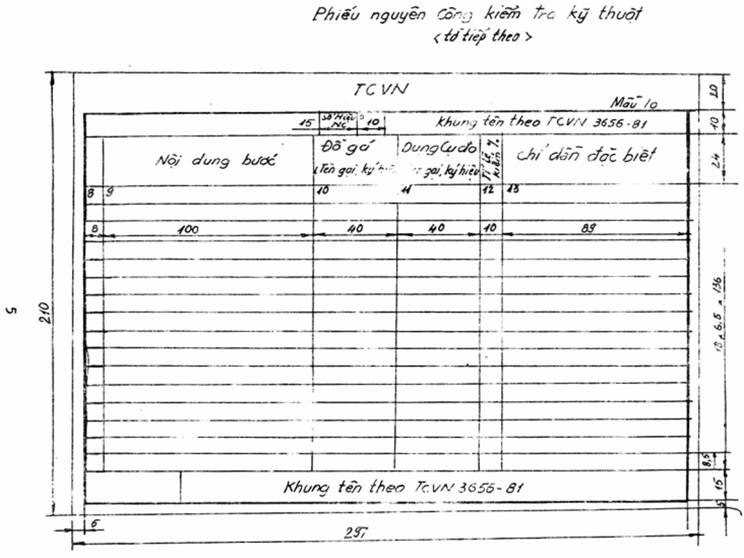 Phiếu nguyên công kiểm tra kỹ thuật
<tờ tiếp theo>
TCVN
Mẫu 10
Số hiệu NC
15
10
Khung tên theo TCVN 3656-81
Nội dung bước
Đồ gá
(Tên gọi, ký hiệu
Dụng cụ đo
gọi, ký hiệu
kiểm %
Chỉ dẫn đặc biệt
8 9 10 11 12 13
8 100 40 40 10 89
20
10
24
8,5
15
5
5
210
Khung tên theo TCVN 3656-81